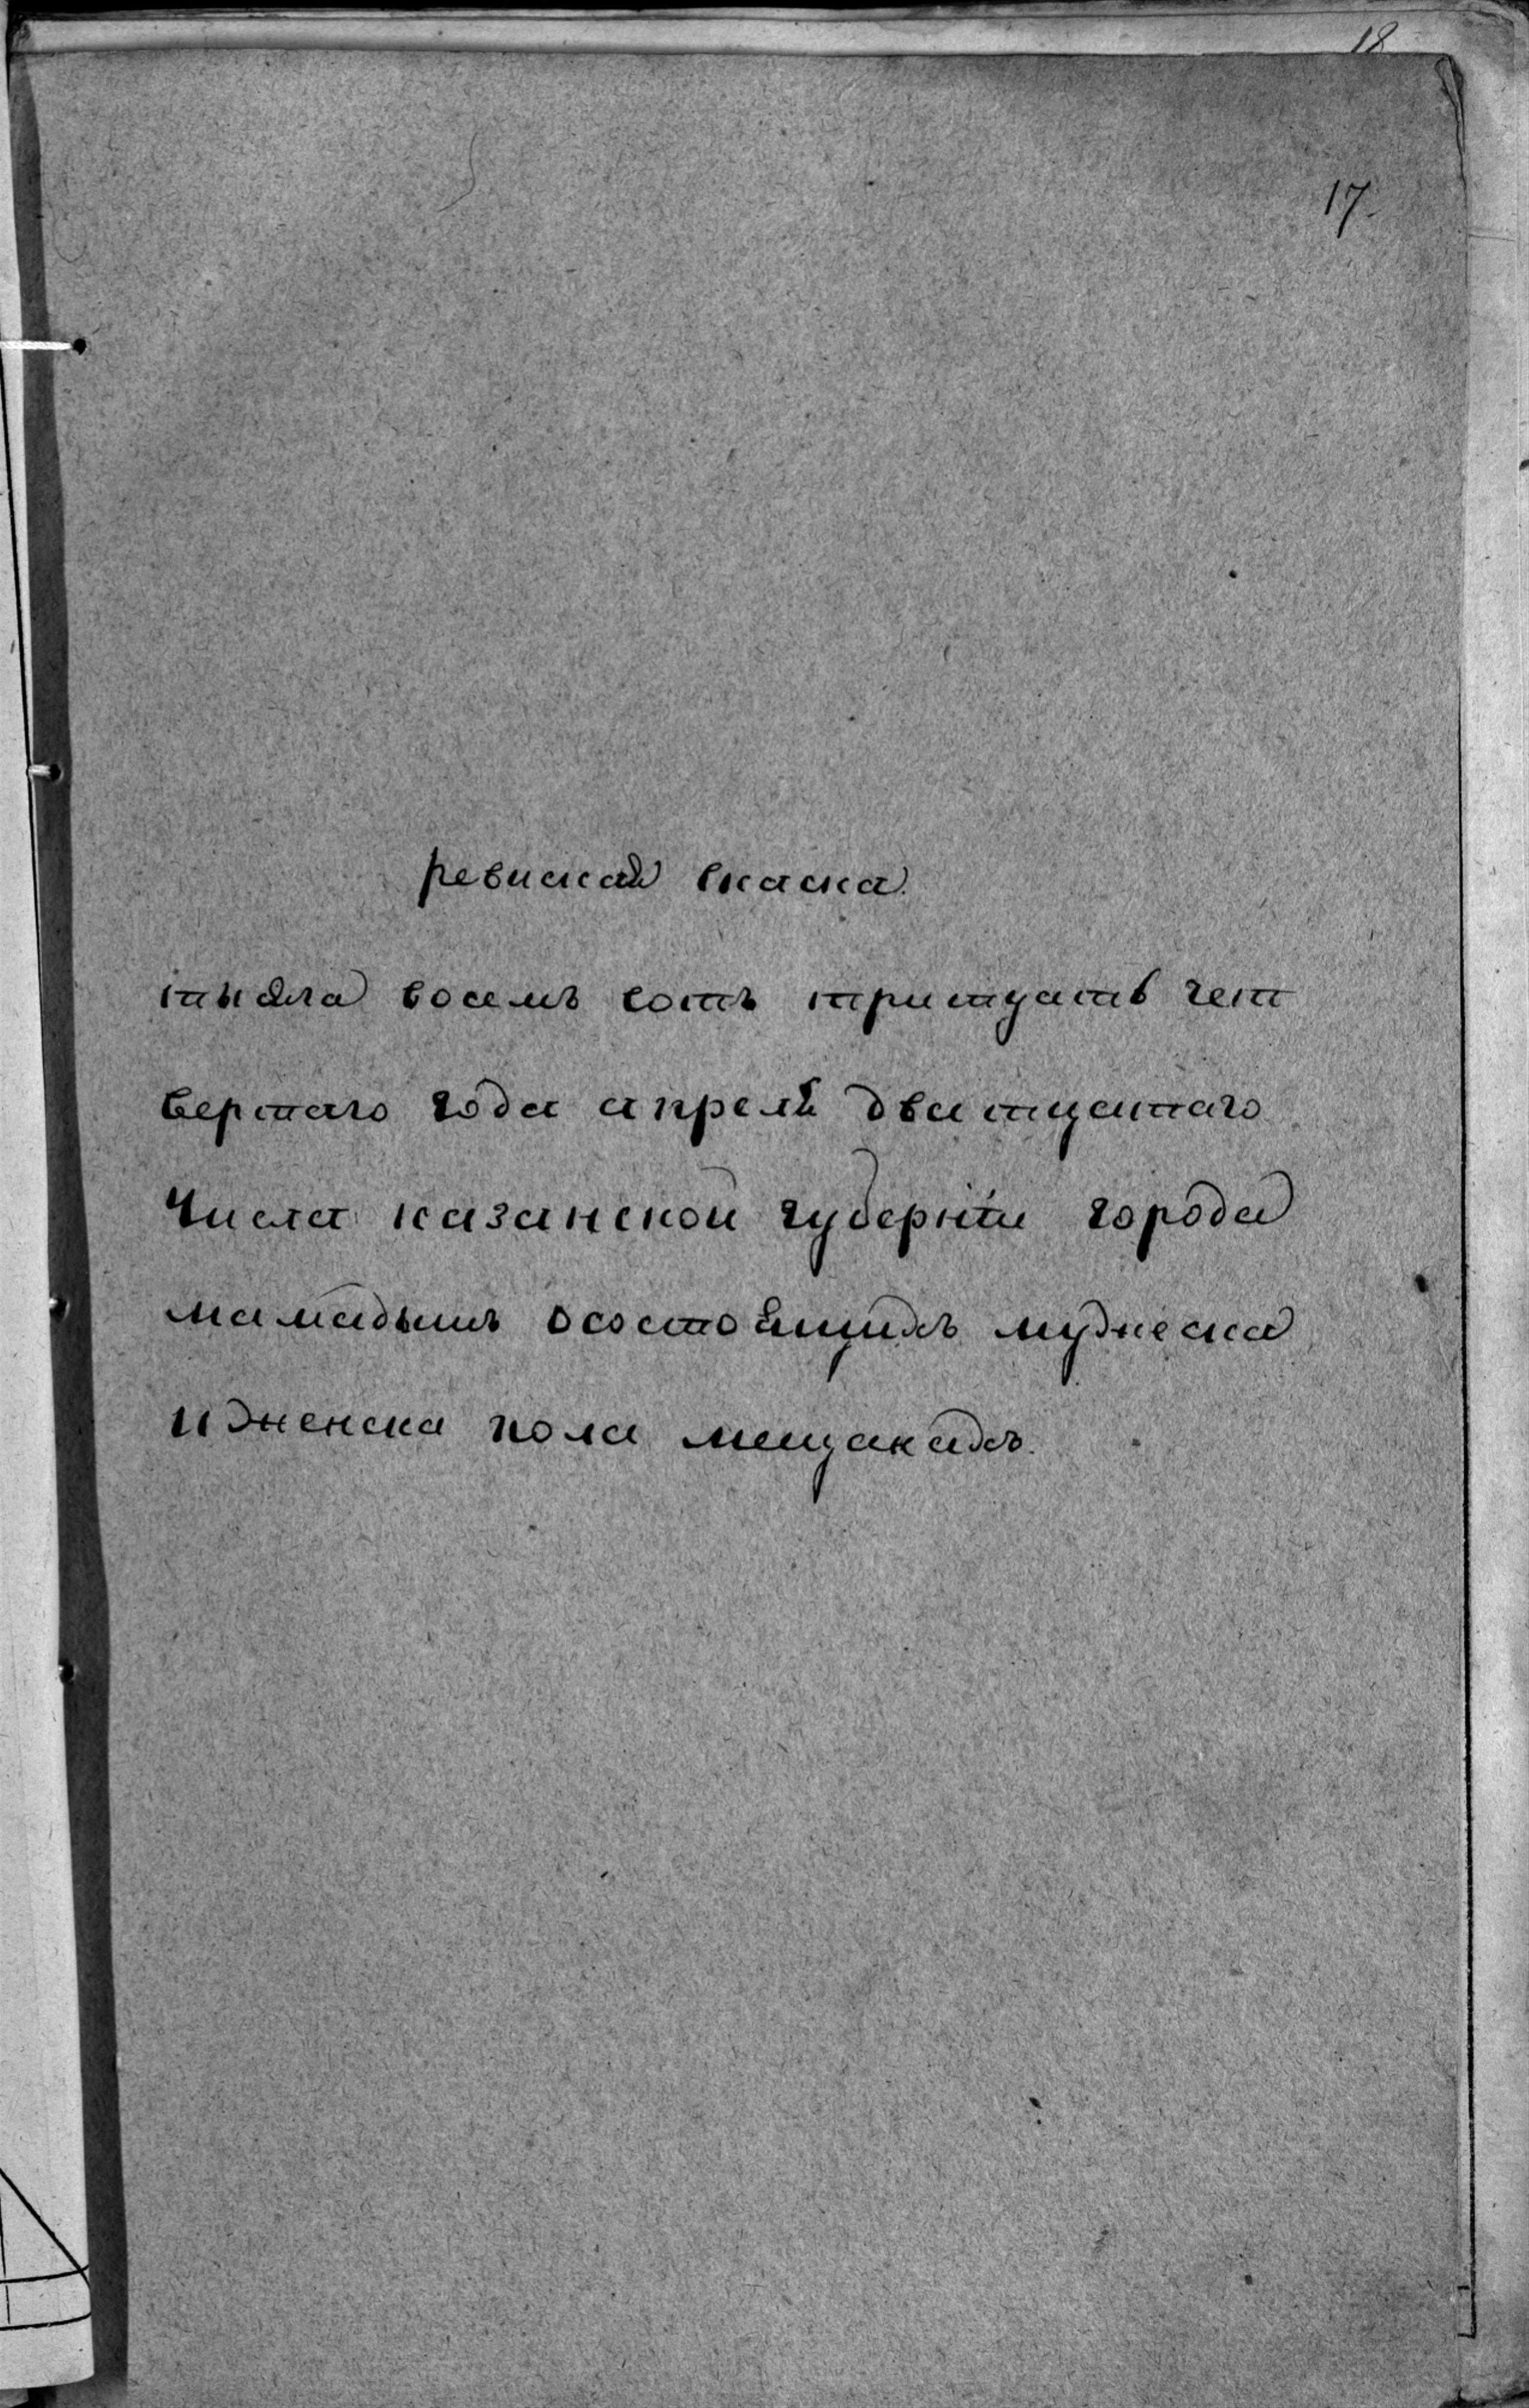 18
17.
ревиская скаска.
тысяча восемъ сотъ тритцать чет
вертаго года апреля дватцатаго
Числа казанской губернiи города
мамадышъ осостоящихъ мужеска
иженска пола мещанахъ.